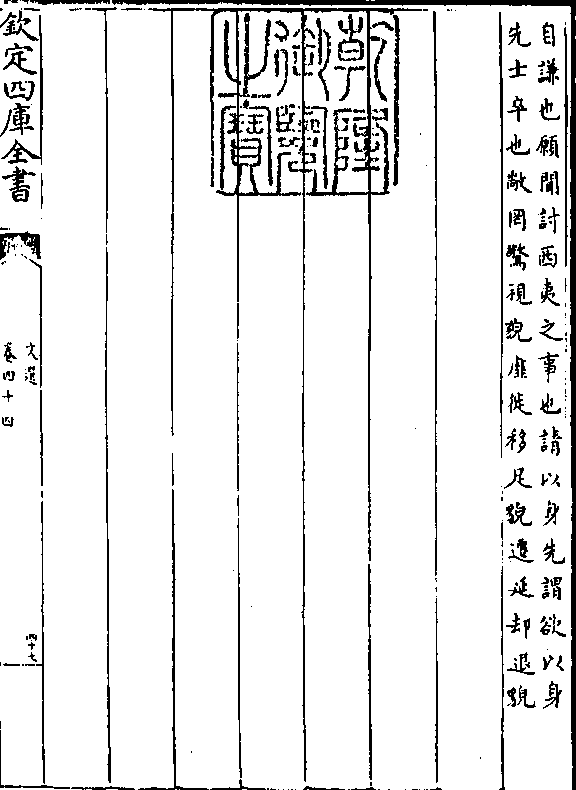 自謙也願聞討西夷之事也請以身先謂欲以身
先士卒也敞罔驚視貌靡徙移足貌遷延却退貌
乾隆御覽之寶
欽定四庫全書
文選
卷四十四
四十七